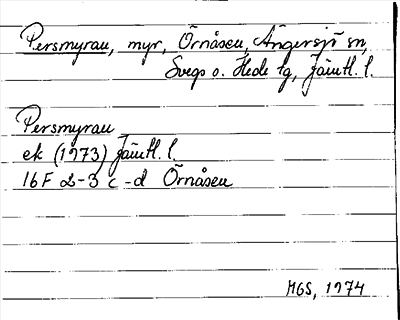 Persmyran, myr, Örnåsen, Ängersjö sn,
Svegs o. Hede tg, Jämtl. l.
Persmyran
ek (1973) Jämtl. l.
16F 2-3 c-d Örnåsen
MGS, 1974